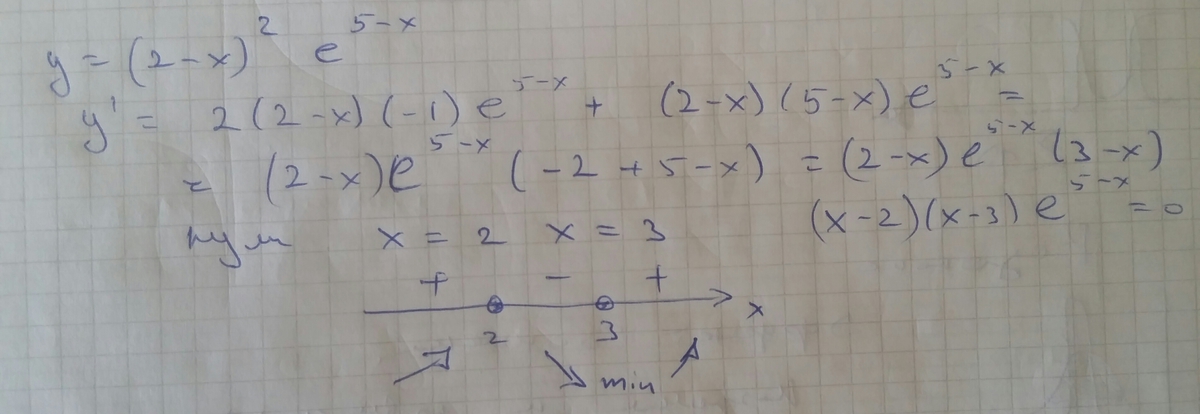 y = (2-x)² e^{5-x}
y' = 2(2-x)(-1) e^{5-x} + (2-x)(5-x) e^{5-x} =
= (2-x) e^{5-x} (-2+5-x) = (2-x) e^{5-x} (3-x)
(x-2)(x-3) e^{5-x} = 0
нули x = 2 x = 3
+ - +
2 3 x
min